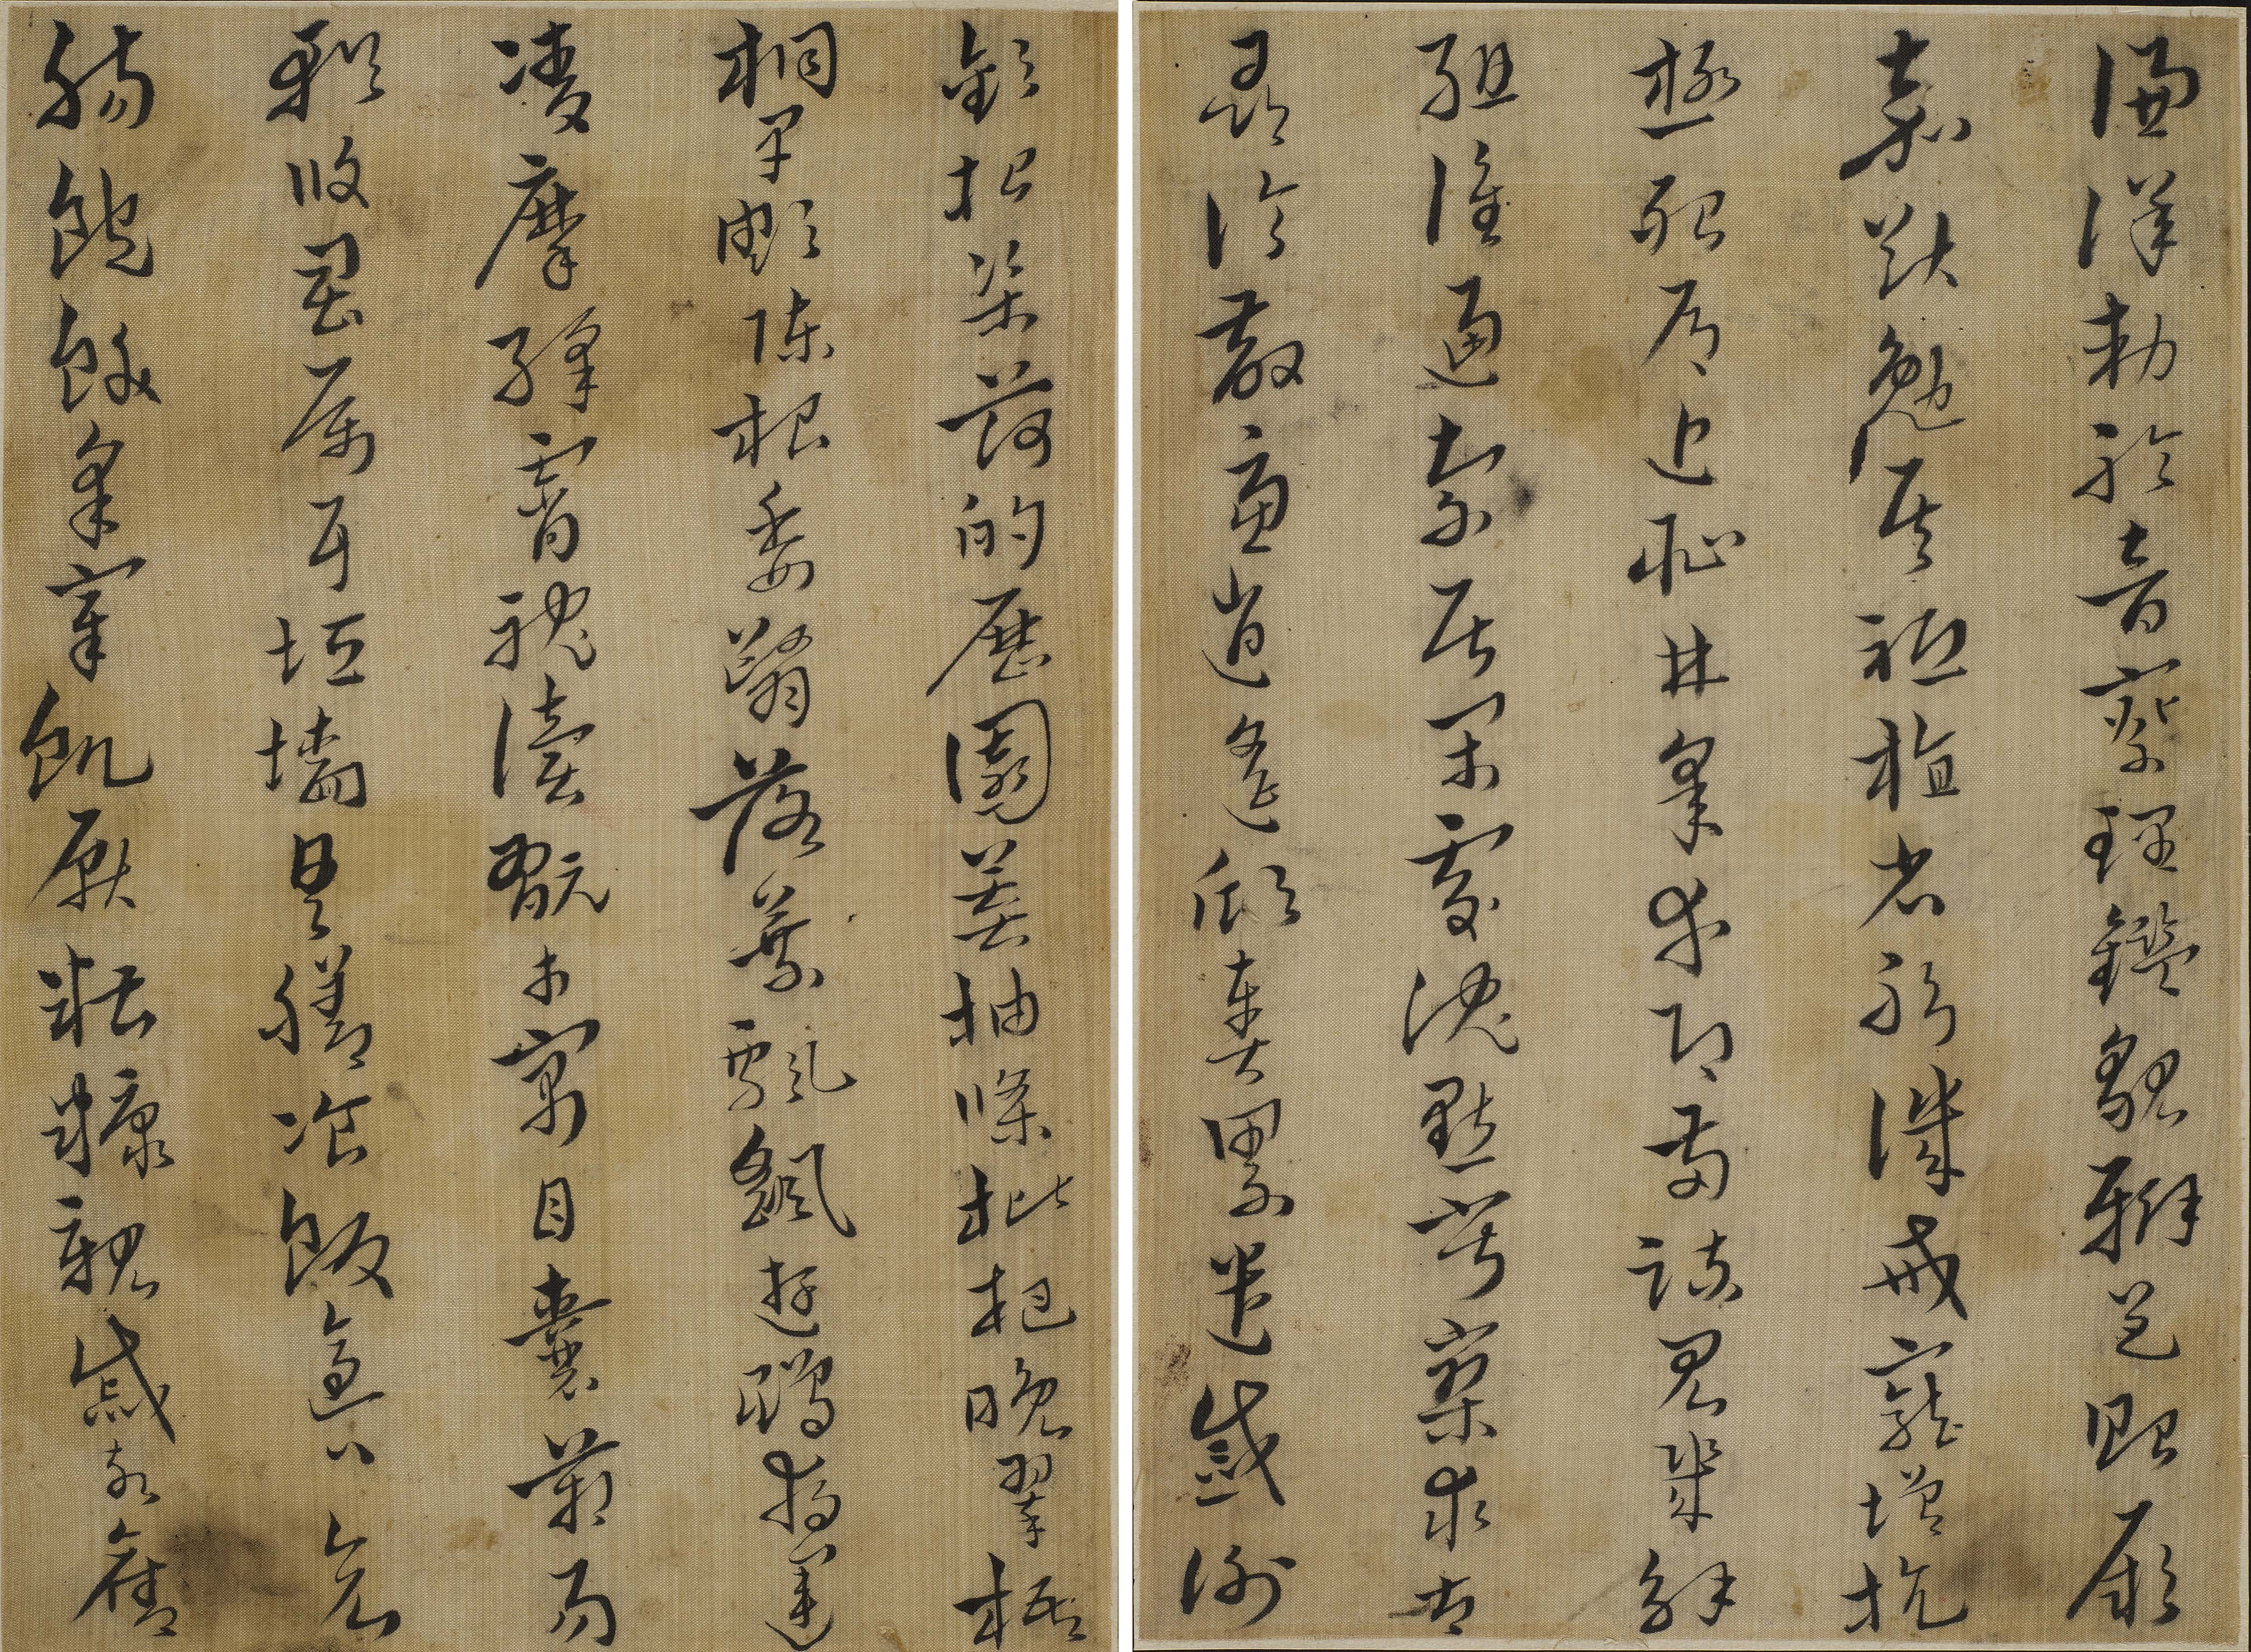 謙謹勑聆音察理鑑貌辨色貽厥
嘉猷勉其祗植省躬譏戒寵增抗
極殆辱近恥林皋幸即兩疏見機解
組誰逼索居閑處沉默寂寥求古
尋論散慮逍遙欣奏累遣慼謝
歡招渠荷的歷園莽抽條枇杷晚翠梧
桐早凋陳根委翳落葉飄颻遊鵾獨運
凌摩絳霄耽讀翫市寓目囊箱易
輶攸畏屬耳垣墻具膳飡飯適口充
腸飽飫烹宰飢厭糟糠親戚故舊